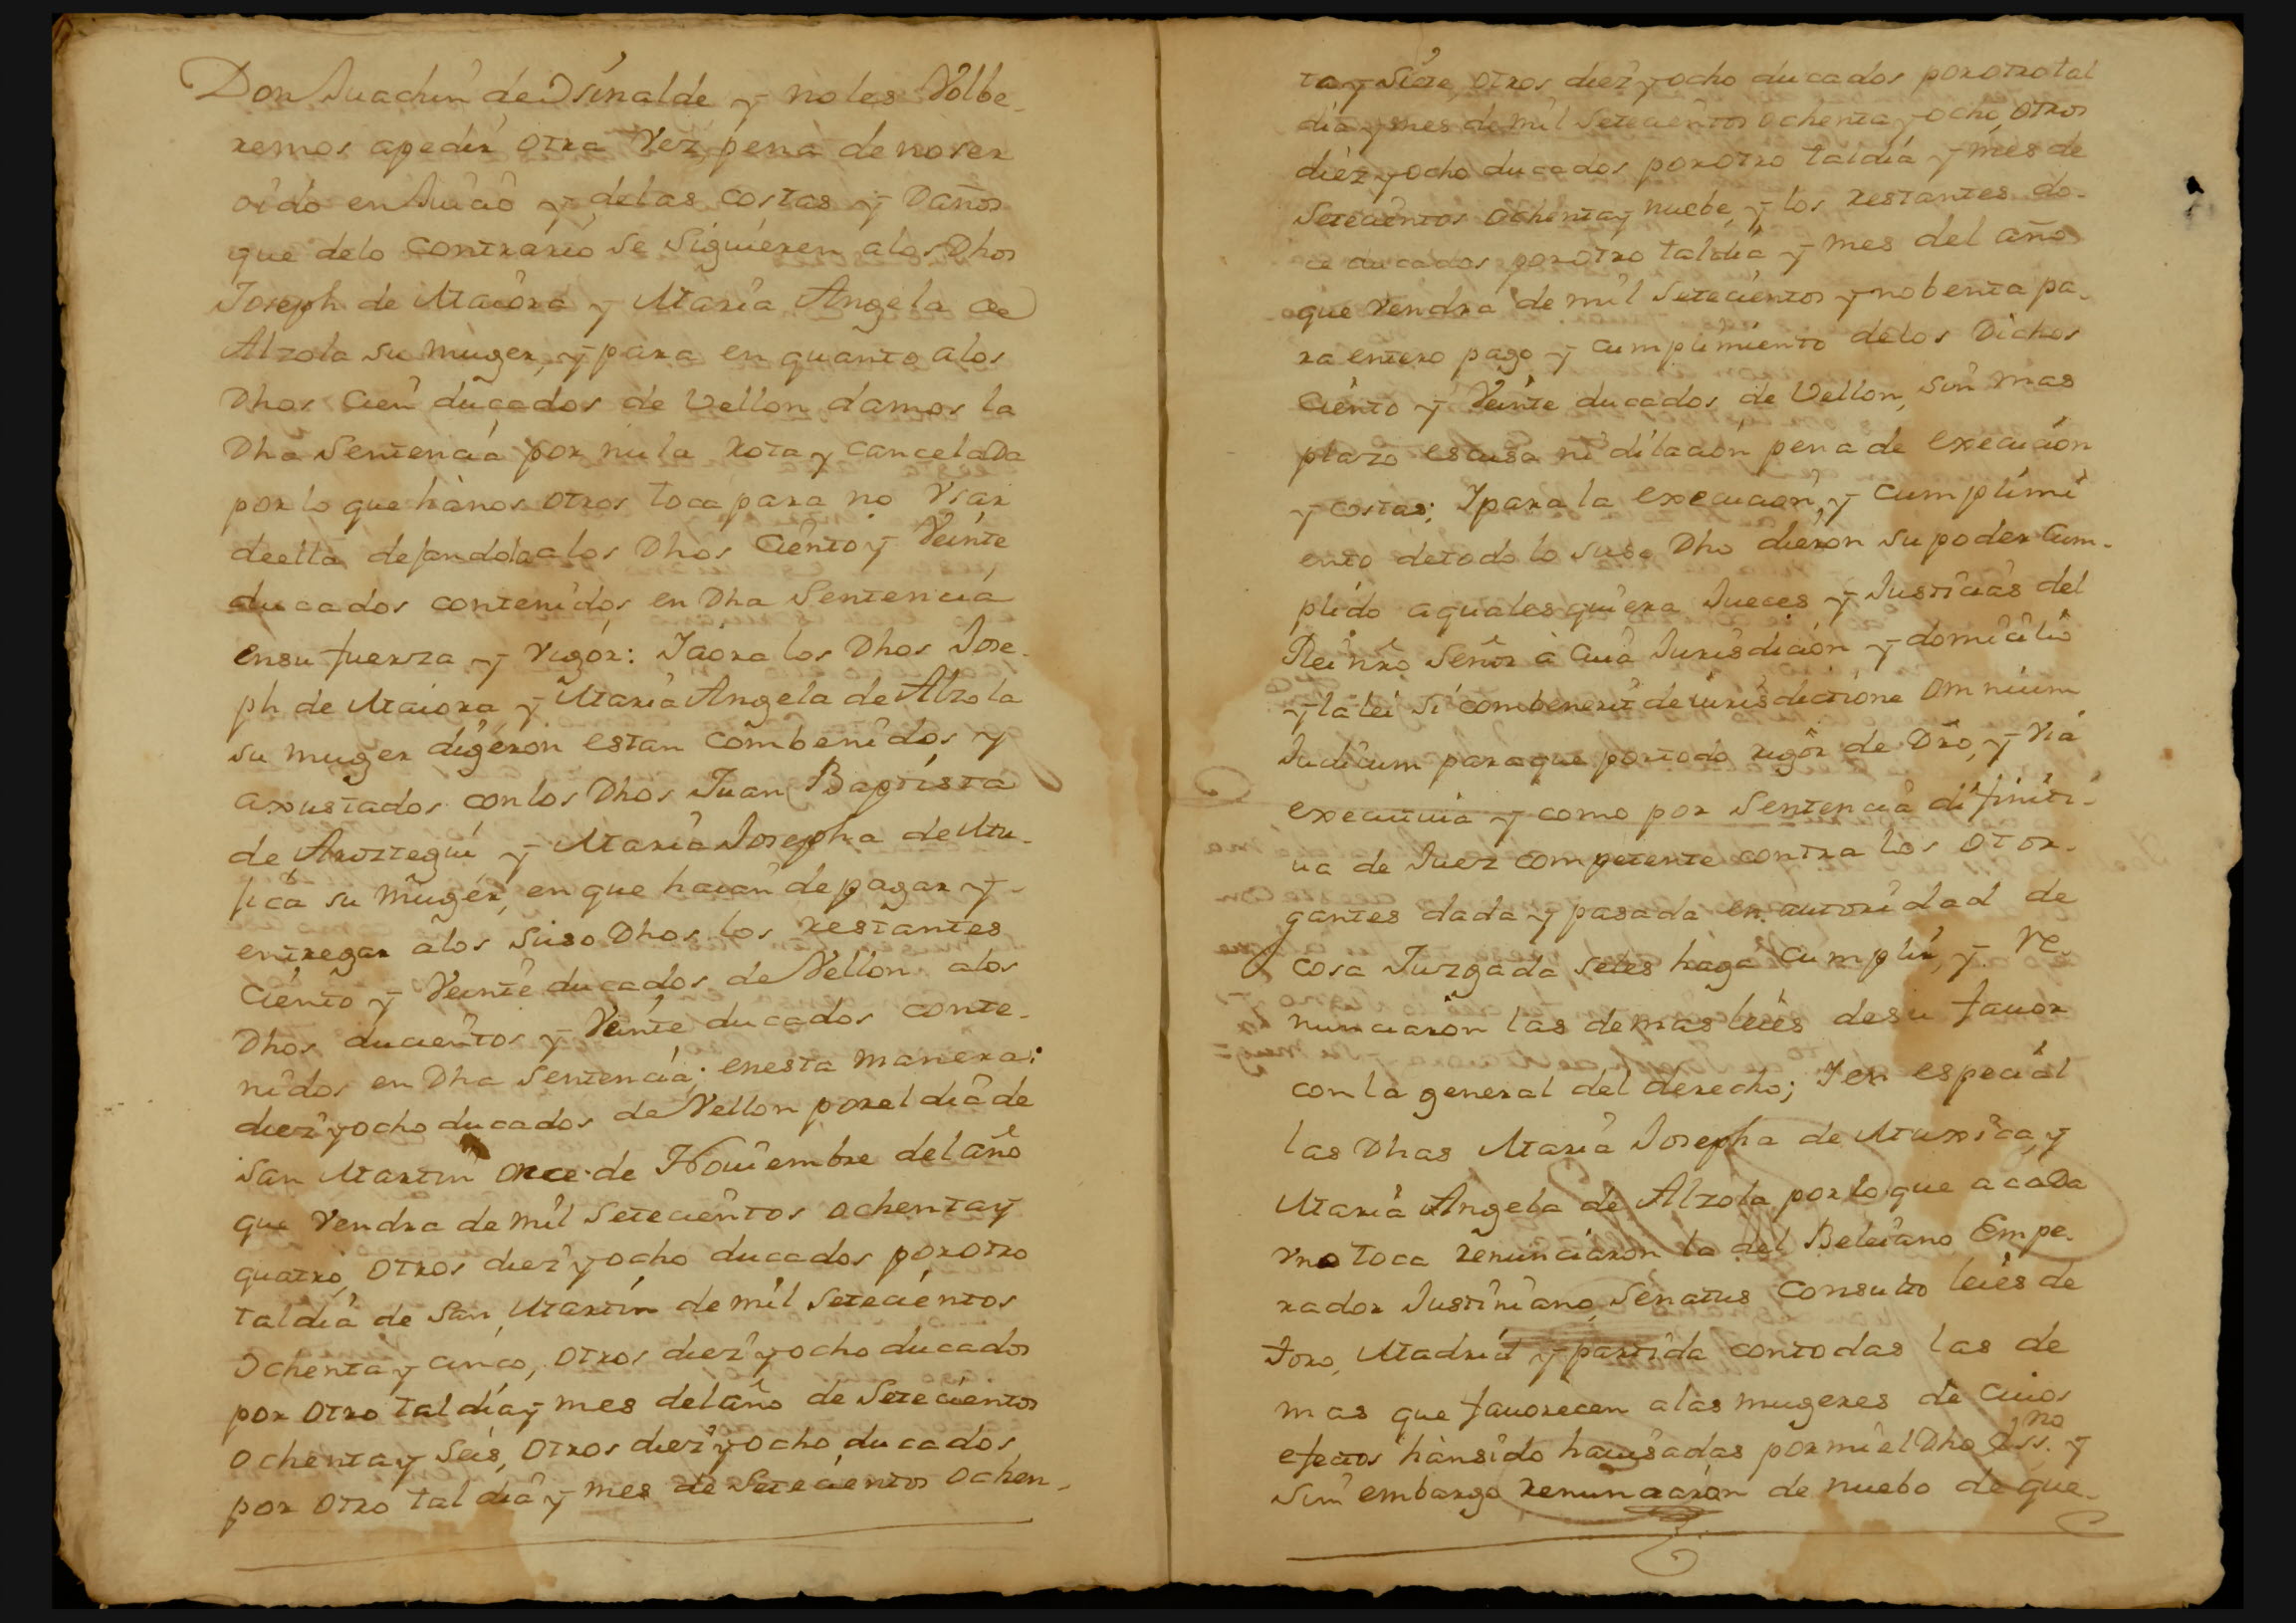 Don Juachin de Isinalde y no les Volbe-
remos apedir otra Vez, pena de no ser
oido en Juicio y delas costas y Daños
que delo contrario se siguieren alos Dhos
Joseph de Maiora y Maria Angela de
Alzola su muger, y para en quanto alos
Dhos Cien ducados de Vellon damos la
Dha Sentencia por nula rota y cancelaDa
por lo que hànos otros toca para no Vsar
deella dejandola alos Dhos Ciento y Veinte
ducados contenidos en Dha Sentencia
ensu fuerza y vigor: Iaora los Dhos Jose-
ph de Maiora y Maria Angela de Alzola
su muger digeron estan combenidos y
axustados con los Dhos Juan Baptista
de Aroztegui y Maria Josepha de Mu-
jica su muger, en que haian de pagar y
entregar alos suso Dhos los restantes
Ciento y Veinte ducados de Vellon alos
Dhos ducientos y Veinte ducados conte-
nidos en Dha Sentencia; enesta manera:
diez y ocho ducados de Vellon por el dia de
San Martin once de Nouiembre del año
que vendra de mil Setecientos ochentay
quatro, otros diez y ocho ducados por otro
tal dia de San Martin de mil Setecientos
ochenta y cinco, otros diez y ocho ducados
por otro tal dia y mes del año de Setecientos
ochentay Seis, otros diez y ocho ducados
por otro tal dia y mes de Setecientos ochen-
ta y Siete, otros diez y ocho ducados por otro tal
dia y mes de mil Setecientos ochenta y ocho, otros
diez y ocho ducados por otro tal dia y mes de
Setecientos ochentay nuebe, y los restantes do-
ce ducados por otro tal dia y mes del año
que vendra de mil Setecientos y nobenta pa-
ra entero pago y cumplimiento delos Dichos
Ciento y Veinte ducados de Vellon, sin mas
plazo escusa ni dilacion pena de execucion
y costas; Ipara la execucion, y cumplimi
ento detodo lo suso Dho dieron su poder Cum-
plido a qualesquiera Jueces y Justicias del
Rei nrō Señor à Cuia Jurisdicion y domicilio
y la lei si combenerit de iurisdictione omnium
Judicum paraque portodo rigor de Drō, y via
executiua y como por Sentencia difiniti-
ua de Juez competente contra los otor-
gantes dada y pasada en autoridad de
cosa Juzgada seles haga cumplir, y re-
nunciaron las demas leies desu fauor
con la general del derecho; I en especial
las Dhas Maria Josepha de Muxica, y
Maria Angela de Alzola por lo que acaDa
vno toca renunciaron la del Beleiano Empe-
rador Justiniano, Senatus Consulto leies de
Toro, Madrid y partida contodas las de
mas que fauorecen alas mugeres de cuios
efectos hànsido hauisadas por mi el Dho Ess.no y
Sin embargo renunciaron de nuebo de que-